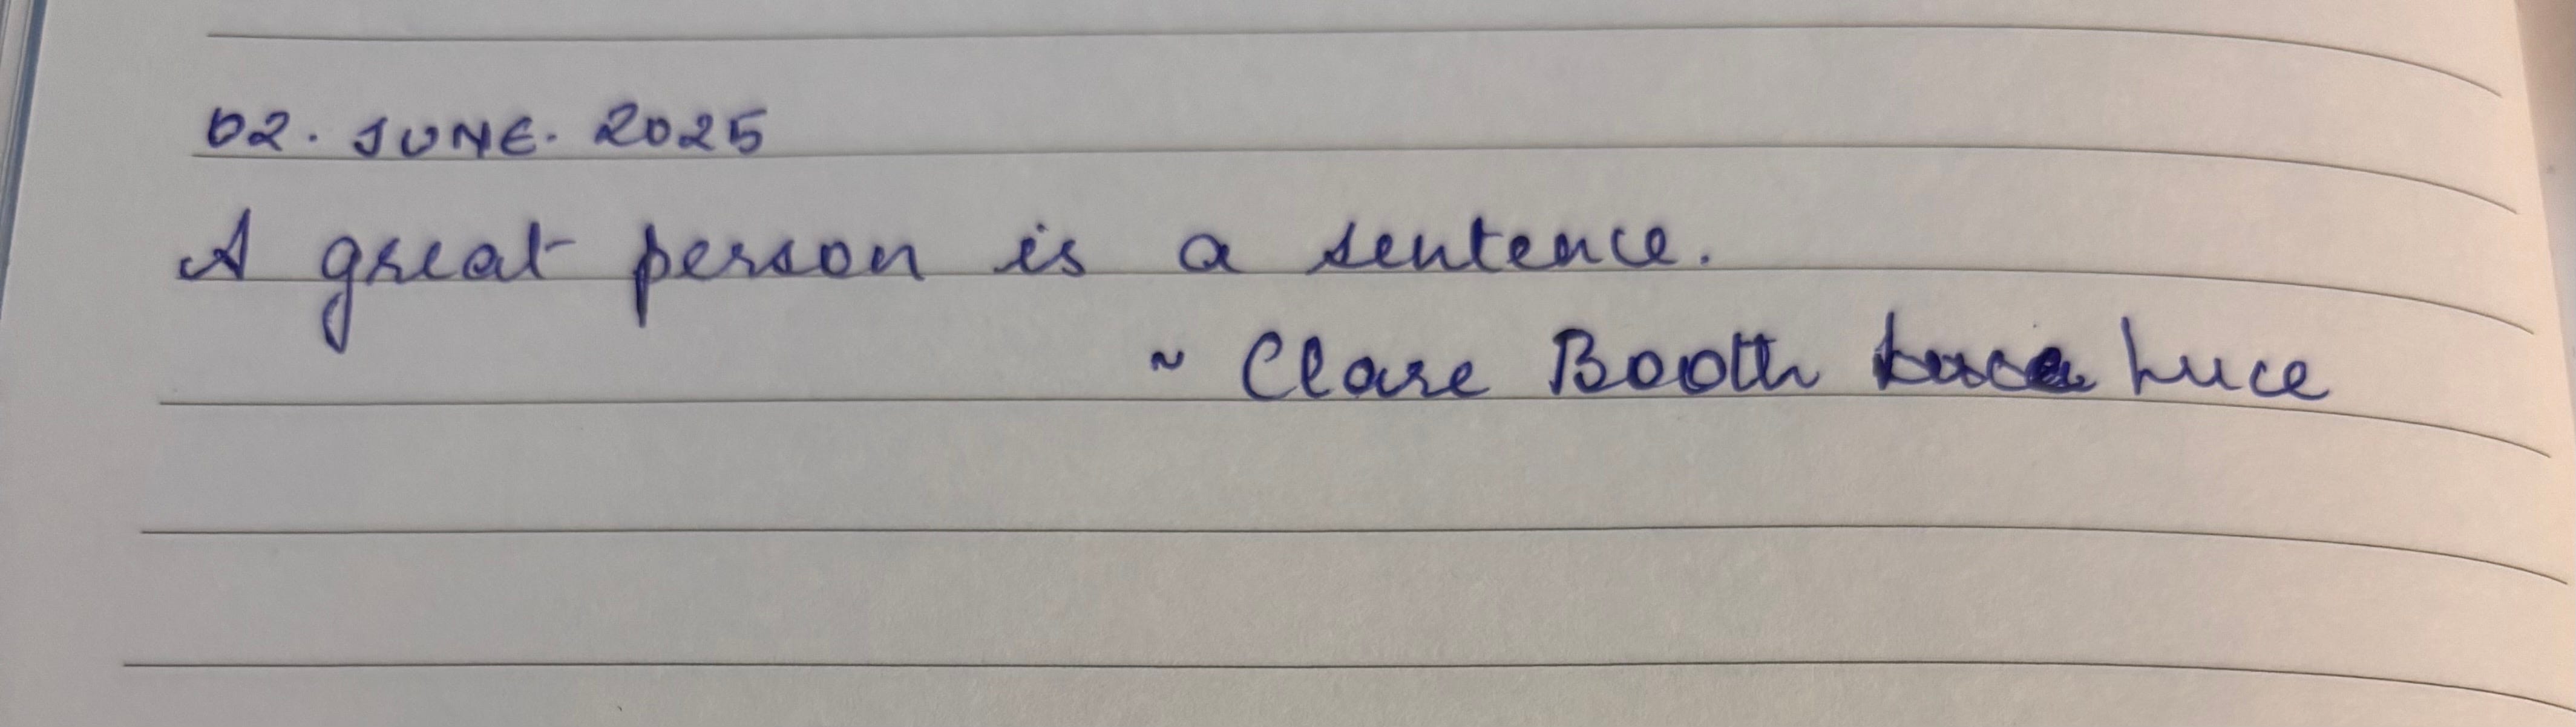 02. JUNE. 2025
A great person is a sentence.
~ Clare Booth Luce